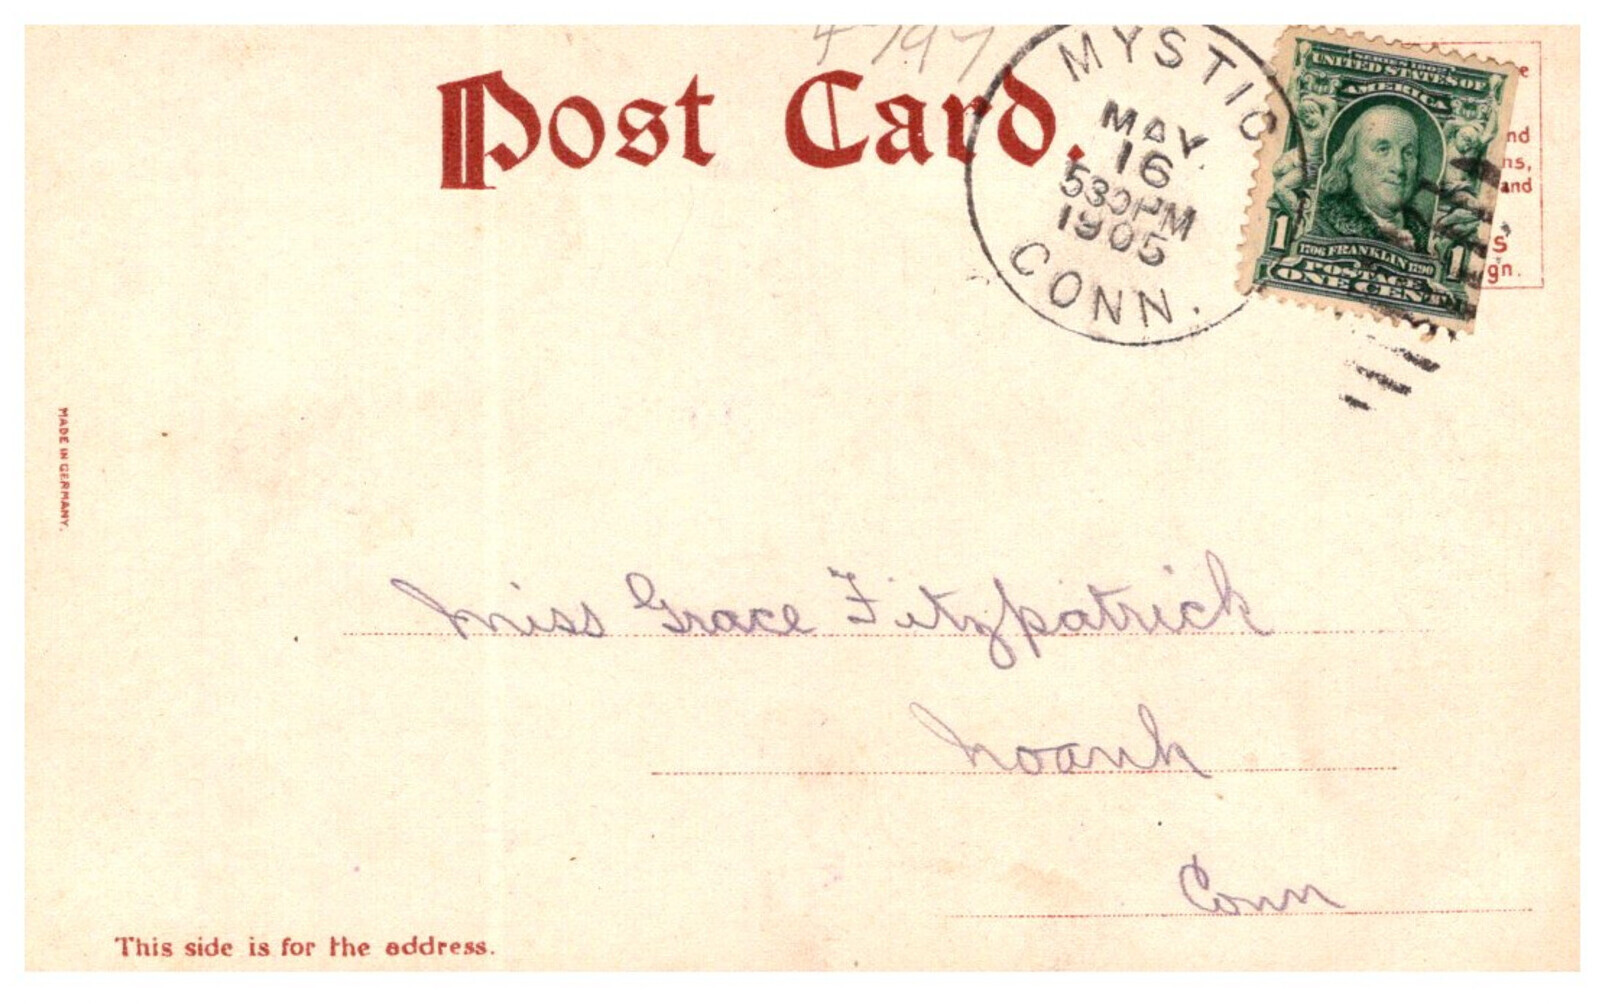 4797
Post Card.
MYSTIC
MAY
16
530PM
1905
CONN.
SERIES 1902
UNITED STATES OF
AMERICA
1706 FRANKLIN 1790
1 1
POSTAGE
ONE CENT
e
nd
ns,
and
s
gn.
MADE IN GERMANY.
Miss Grace Fitzpatrick
Noank
Conn
This side is for the address.